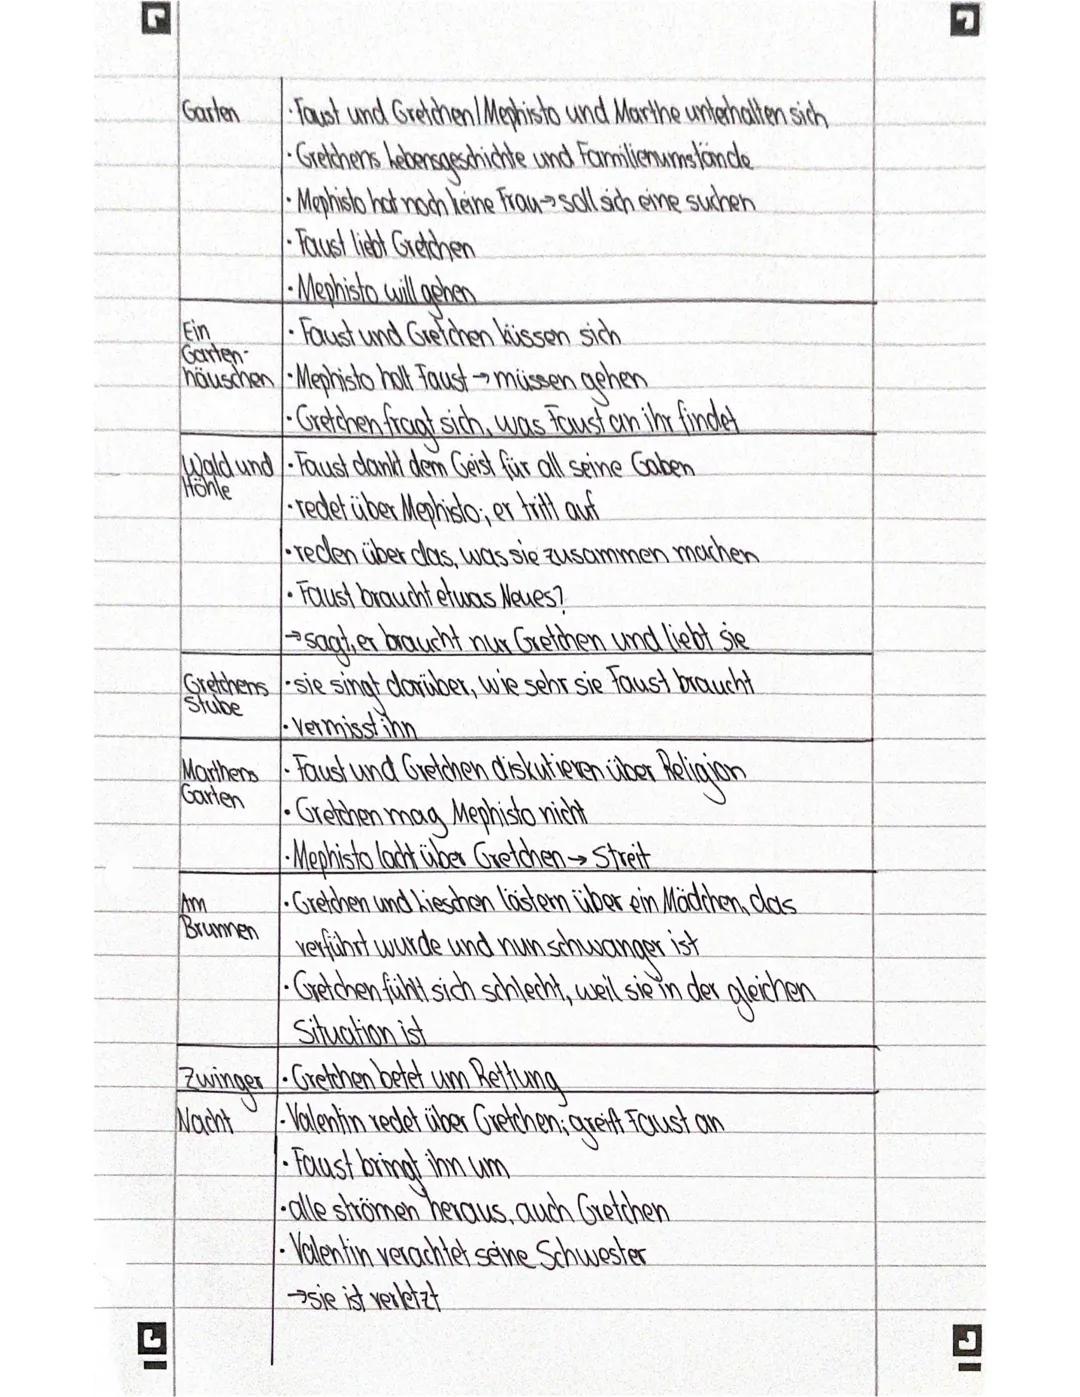 Garten
· Faust und Gretchen/Mephisto und Marthe unterhalten sich
· Gretchens Lebensgeschichte und Familienumstände
· Mephisto hat noch keine Frau → soll sich eine suchen
· Faust liebt Gretchen
· Mephisto will gehen
Ein
Garten-
häuschen
· Faust und Gretchen küssen sich
· Mephisto holt Faust → müssen gehen
· Gretchen fragt sich, was Faust an ihr findet
Wald und
Höhle
· Faust dankt dem Geist für all seine Gaben
· redet über Mephisto; er tritt auf
· reden über das, was sie zusammen machen
· Faust braucht etwas Neues?
→ sagt, er braucht nur Gretchen und liebt sie
Gretchens
Stube
· sie singt darüber, wie sehr sie Faust braucht
· vermisst ihn
Marthens
Garten
· Faust und Gretchen diskutieren über Religion
· Gretchen mag Mephisto nicht
· Mephisto lacht über Gretchen → Streit
Am
Brunnen
· Gretchen und Lieschen lästern über ein Mädchen, das
verführt wurde und nun schwanger ist
· Gretchen fühlt sich schlecht, weil sie in der gleichen
Situation ist
Zwinger
· Gretchen betet um Rettung
Nacht
· Valentin redet über Gretchen; greift Faust an
· Faust bringt ihn um
· alle strömen heraus, auch Gretchen
· Valentin verachtet seine Schwester
→ sie ist verletzt